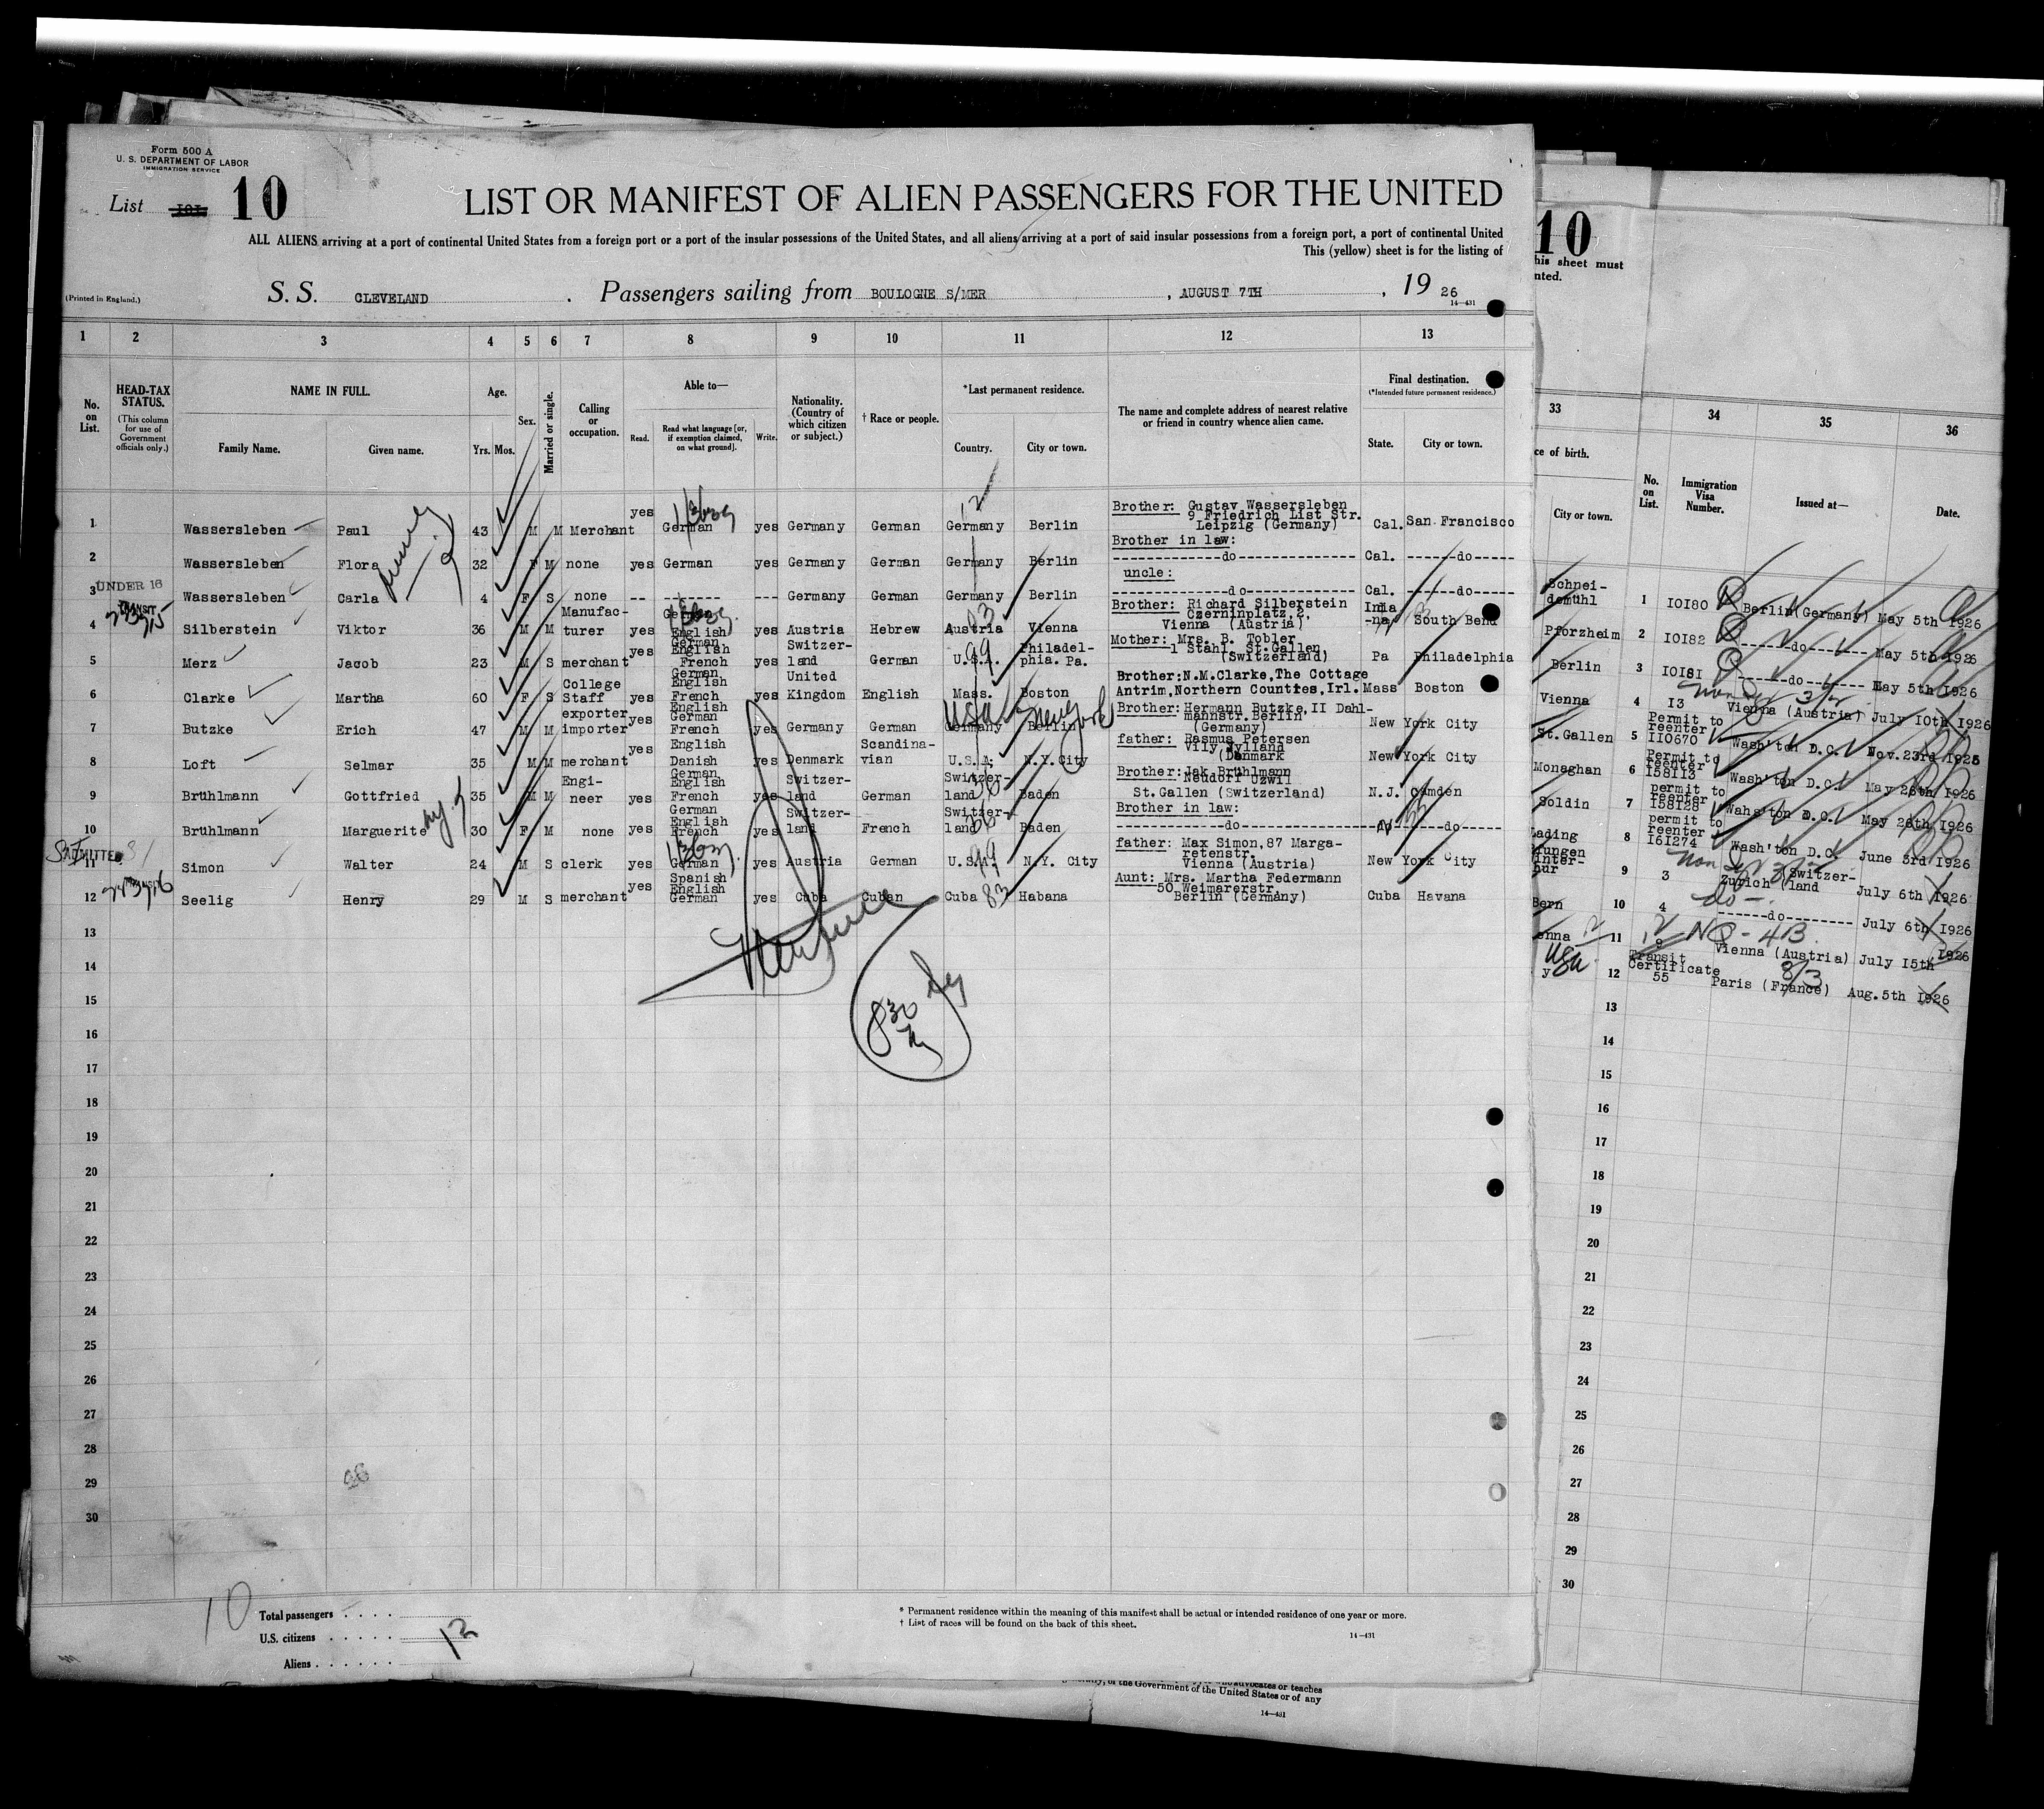 Form 500 A
U. S. DEPARTMENT OF LABOR
IMMIGRATION SERVICE
List 10
LIST OR MANIFEST OF ALIEN PASSENGERS FOR THE UNITED
ALL ALIENS arriving at a port of continental United States from a foreign port or a port of the insular possessions of the United States, and all aliens arriving at a port of said insular possessions from a foreign port, a port of continental United
This (yellow) sheet is for the listing of
(Printed in England.)
S. S. CLEVELAND. Passengers sailing from BOULOGNE S/MER, AUGUST 7TH, 19 26
14-431
1 2 3 4 5 6 7 8 9 10 11 12 13
No. on List.
HEAD-TAX STATUS.
(This column for use of Government officials only.)
NAME IN FULL.
Family Name. Given name.
Age.
Yrs. Mos.
Sex.
Married or single.
Calling or occupation.
Able to—
Read.
Read what language [or, if exemption claimed, on what ground].
Write.
Nationality. (Country of which citizen or subject.)
† Race or people.
*Last permanent residence.
Country. City or town.
The name and complete address of nearest relative or friend in country whence alien came.
Final destination.
(*Intended future permanent residence.)
State. City or town.
1 Wassersleben Paul 43 M M Merchant yes German yes Germany German Germany Berlin Brother: Gustav Wassersleben 9 Friedrich List Str. Leipzig (Germany) Cal. San Francisco
2 Wassersleben Flora 32 F M none yes German yes Germany German Germany Berlin Brother in law: -----do----- Cal. -----do-----
UNDER 16
3 Wassersleben Carla 4 F S none -- ------- --- Germany German Germany Berlin uncle: -----do----- Cal. -----do-----
TRANSIT
4 Silberstein Viktor 36 M M Manufacturer yes German English yes Austria Hebrew Austria Vienna Brother: Richard Silberstein Czerninplatz,2, Vienna (Austria) India-na South Bend
5 Merz Jacob 23 M S merchant yes German English French yes Switzerland German U.S.A. Philadelphia. Pa. Mother: Mrs. B. Tobler 1 Stahl, St.Gallen (Switzerland) Pa Philadelphia
6 Clarke Martha 60 F S College Staff yes German English French yes United Kingdom English Mass. Boston Brother:N.M.Clarke,The Cottage Antrim,Northern Counties,Irl. Mass Boston
7 Butzke Erich 47 M M exporter importer yes English German French yes Germany German Germany Berlin USA New York Brother: Hermann Butzke,II Dahlmannstr.Berlin (Germany) New York City
8 Loft Selmar 35 M M merchant yes English Danish yes Denmark Scandinavian U.S.A. N.Y.City father: Rasmus Petersen Vily Jylland (Denmark New York City
9 Brühlmann Gottfried 35 M M Engineer yes German English French yes Switzerland German Switzerland Baden Brother:Jak.Brühlmann Neudorf Uzwil St.Gallen (Switzerland) N.J. Camden
10 Brühlmann Marguerite 30 F M none yes German English French yes Switzerland French Switzerland Baden Brother in law: -----do----- -----do-----
ADMITTED
11 Simon Walter 24 M S clerk yes German yes Austria German U.S.A. N.Y. City father: Max Simon,87 Margaretenstr. Vienna (Austria) New York City
12 Seelig Henry 29 M S merchant yes Spanish English German yes Cuba Cuban Cuba 83 Habana Aunt: Mrs. Martha Federmann 50 Weimarerstr. Berlin (Germany) Cuba Havana
13
14
15
16
17
18
19
20
21
22
23
24
25
26
27
28
29
30
830
10
Total passengers . . . .
U.S. citizens . . . . . 12
Aliens . . . . . .
* Permanent residence within the meaning of this manifest shall be actual or intended residence of one year or more.
† List of races will be found on the back of this sheet.
14-431
10
his sheet must
nted.
33 34 35 36
ce of birth.
City or town.
No. on List.
Immigration Visa Number.
Issued at—
Date.
Schneidemühl 1 IOI80 Berlin(Germany) May 5th 1926
Pforzheim 2 IOI82 -----do----- May 5th 1926
Berlin 3 IOI8I -----do----- May 5th 1926
Vienna 4 I3 Vienna (Austria) July IOth 1926
St.Gallen 5 Permit to reenter II0670 Wash'ton D.C. Nov.23rd 1925
Monaghan 6 Permit to reenter I58II3 Wash'ton D.C. May 28th 1926
Soldin 7 permit to reenter I58I28 Wahs'ton D.C. May 26th 1926
Lading 8 permit to reenter I6I274 Wash'ton D.C. June 3rd 1926
9 3 Zürich (Switzerland July 6th 1926
Bern 10 4 -----do----- July 6th 1926
enna 11 Vienna (Austria) July I5th 1926
USA
y 12 Transit Certificate 55 Paris (France) Aug.5th 1926
13
14
15
16
17
18
19
20
21
22
23
24
25
26
27
28
29
30
advocates or teaches
of the Government of the United States or of any
14-431